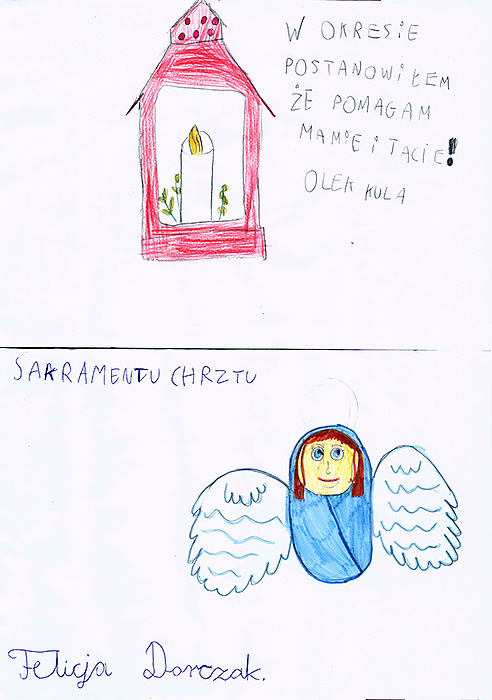 W OKRESIE
POSTANOWIŁEM
ŻE POMAGAM
MAMIE I TACIE!
OLEK KULA
SAKRAMENTU CHRZTU
Felicja Dorczak.